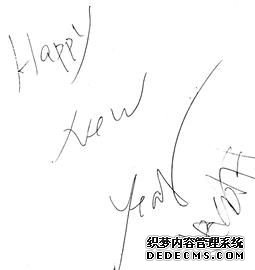 Happy
New
Year
织梦内容管理系统
DEDECMS.COM